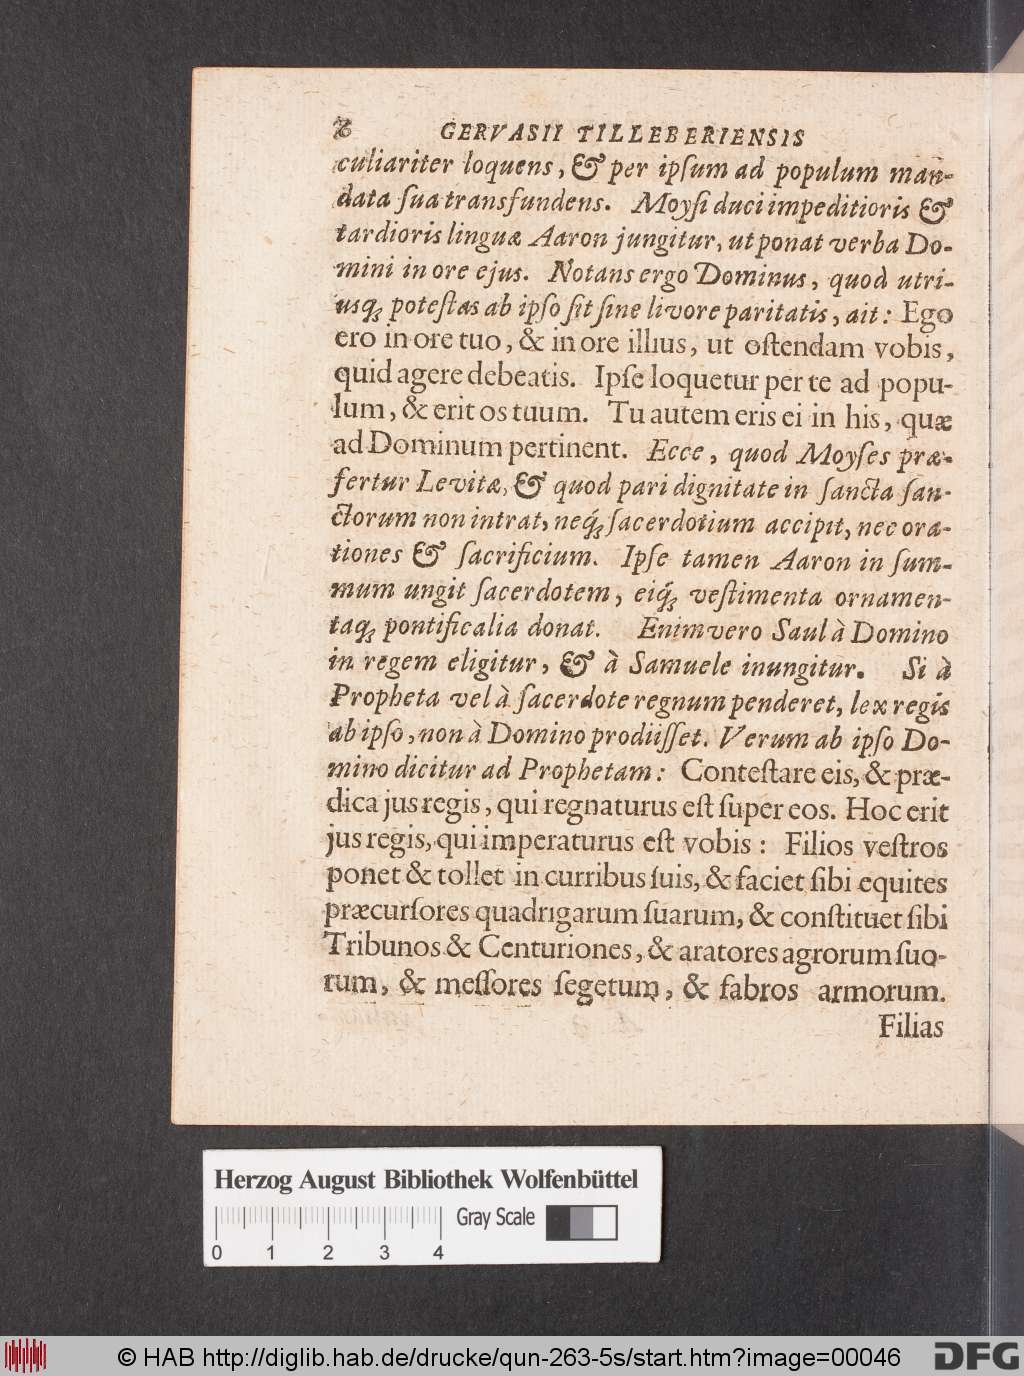 2 GERVASII TILLEBERIENSIS
culiariter loquens, & per ipſum ad populum man-
data ſua transfundens. Moyſi duci impeditioris &
tardioris linguæ Aaron jungitur, ut ponat verba Do-
mini in ore ejus. Notans ergo Dominus, quod utri-
usq; poteſtas ab ipſo ſit ſine livore paritatis, ait: Ego
ero in ore tuo, & in ore illius, ut oſtendam vobis,
quid agere debeatis. Ipſe loquetur per te ad popu-
lum, & erit os tuum. Tu autem eris ei in his, quæ
ad Dominum pertinent. Ecce, quod Moyſes præ-
fertur Levitæ, & quod pari dignitate in ſancta ſan-
ctorum non intrat, neq́; ſacerdotium accipit, nec ora-
tiones & ſacrificium. Ipſe tamen Aaron in ſum-
mum ungit ſacerdotem, eiq́; veſtimenta ornamen-
taq; pontificalia donat. Enimvero Saul à Domino
in regem eligitur, & à Samuele inungitur. Si à
Propheta vel à ſacerdote regnum penderet, lex regis
ab ipſo, non à Domino prodiiſſet. Verum ab ipſo Do-
mino dicitur ad Prophetam: Conteſtare eis, & præ-
dica jus regis, qui regnaturus eſt ſuper eos. Hoc erit
jus regis, qui imperaturus eſt vobis: Filios veſtros
ponet & tollet in curribus ſuis, & faciet ſibi equites
præcurſores quadrigarum ſuarum, & conſtituet ſibi
Tribunos & Centuriones, & aratores agrorum ſuo-
rum, & meſſores ſegetum, & fabros armorum.
Filias
Herzog August Bibliothek Wolfenbüttel
Gray Scale
0 1 2 3 4
© HAB http://diglib.hab.de/drucke/qun-263-5s/start.htm?image=00046
DFG